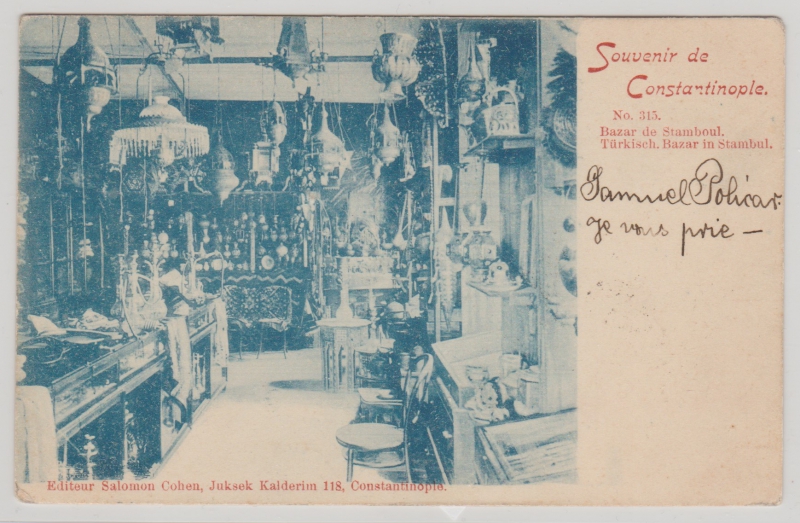 Souvenir de
Constantinople.
No. 315.
Bazar de Stamboul.
Türkisch. Bazar in Stambul.
Samuel Policar
je vous prie —
Editeur Salomon Cohen, Juksek Kalderim 118, Constantinople.